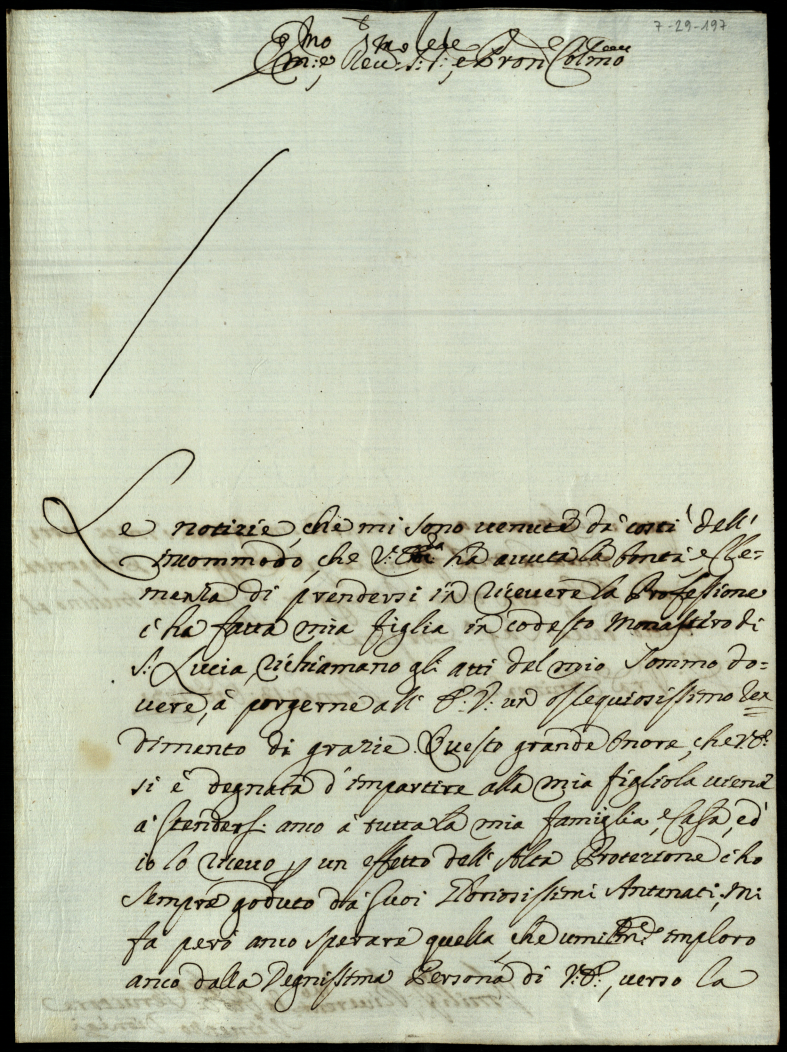 7-29-197
Em:mo e Reu:mo S:r S:r, e Pron Colmo
Le notizie, che mi sono venute di costì dell'
incommodo, che V: Em:za ha avuta la bontà, e Cle=
menza di prendersi in ricevere la Professione
c'ha fatta mia figlia in codesto Monastiro di
S: Lucia, richiamano gli atti del mio sommo do=
vere, à porgerne all' E: V: un ossequiosissimo ren
dimento di grazie. Questo grande onore, che V:E:
si è degnata d'impartire alla mia figliola viene
à stendersi anco à tutta la mia famiglia, e Casa, ed
io lo ricevo p un effetto dell' Alta Protezione c'ho
sempre goduto da suoi Gloriosissimi Antenati; Mi
fà però anco sperare quella, che imploro
anco dalla Degnissima Persona di V:E:, verso la